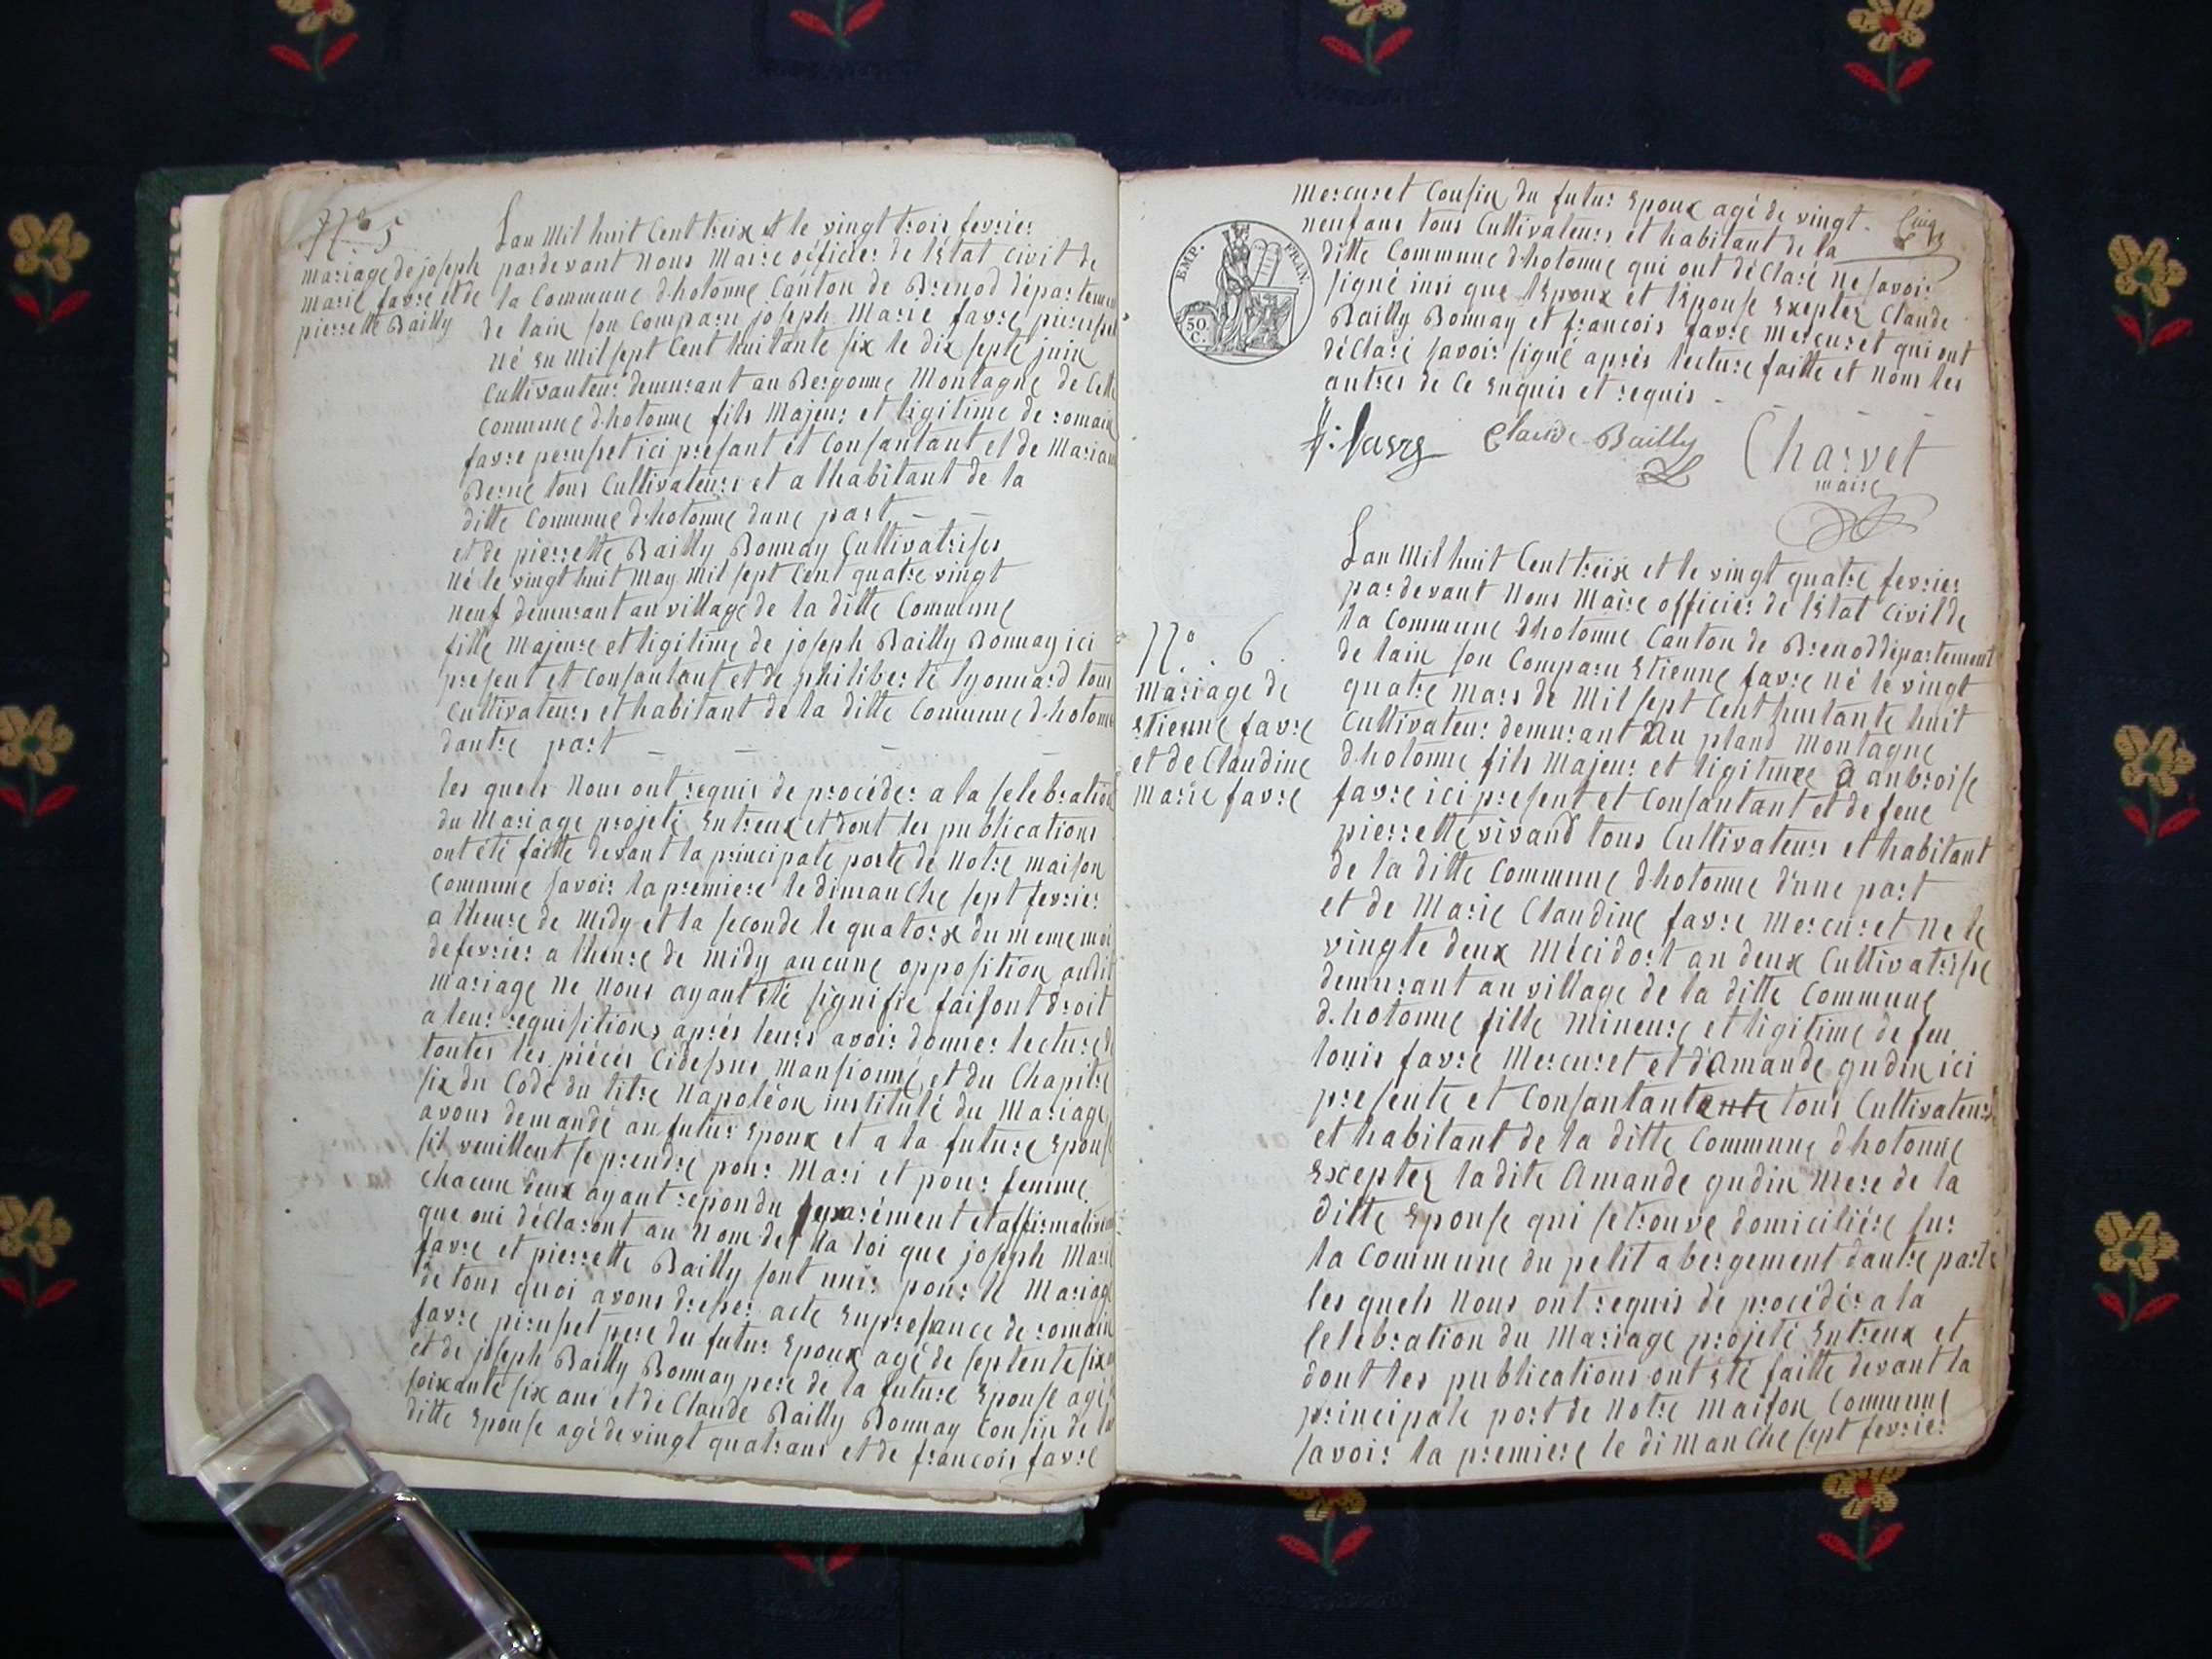 N.º 5
mariage de joseph
marie favre et de
pierrette Bailly
Lan Mil huit Cent treix et le vingt trois fevrier
pardevant Nous Maire officier de létat civil de
la Commune d'hotonne Canton de Brenod départemen
de lain son Comparu joseph Marie favre
Né en Mil sept Cent huitante six le dix septe juin
Cultivanteur demurant au Bergonne Montagne de Cette
Commune d'hotonne fils Majeur et ligitime de romain
favre perusset ici present et Consantant et de Marian
Berne tous Cultivateurs et a lhabitant de la
ditte Commune d'hotonne dune part
et de pierrette Bailly Bonnay Cultivatrises
Né le vingt huit May Mil sept Cent quatre vingt
neuf demurant au village de la ditte Commune
fille Majeure et ligitime de joseph Bailly Bonnay ici
present et Consantant et de philiberte lyonnard tous
Cultivateurs et habitant de la ditte Commune d'hotonne
dautre part
les quels Nous ont requis de procéder a la selebration
du Mariage projeté Entreux et dont les publications
ont été faitte devant la principale porte de Notre maison
Commune savoir la premiere le dimanche sept fevrier
a lheure de Midy et la seconde le quatorx du meme moi
de fevrier a lheure de midy aucune opposition audit
mariage ne Nous ayant été signifie faisont droit
a leur requisitions après leurs avoir donner lecture de
toutes les pièces Cidessus mansionné et du Chapitre
six du Code du titre Napoléon institulé du Mariage
avons demandé au futur Epoux et a la future Epouse
sil veuillent se prendre pour Mari et pour femme
Chacun deux ayant repondu separément et affirmativem
que oui déClaront au Nom de la loi que joseph Mari
favre et pierrette Bailly sont unis pour le Mariage
de tous quoi avons dresser acte En presance de romain
favre pirusset pere du futur Epoux agé de septente six
et de joseph Bailly Bonnay pere de la future Epouse agé
soixante six ans et de Claude Bailly Bonnay Cousin de la
ditte Epouse agé de vingt quatrans et de francois favre
Mercuret Cousin du futur Epoux agé de vingt
neuf ans tous Cultivateurs et habitant de la
ditte Commune d'hotonne qui ont déclaré Ne savoir
signé insi que lEpoux et lEpouse Exeptez Claude
Bailly Bonnay et francois favre Mercuret qui ont
déclaré savoir signé après lecture faitte et Nom les
autres de Ce Enquis et requis
Cinq
EMP. FRAN.
50 C.
f: favre Claude Bailly Charvet
maire
N.º 6
mariage de
Etienne favre
et de Claudine
marie favre
Lan Mil huit Cent treix et le vingt quatre fevrier
pardevant Nous Maire officier de létat Civil de
la Commune dhotonne Canton de Brenod département
de lain son Comparu Etienne favre Né le vingt
quatre mars de Mil sept Cent huitante huit
Cultivateur demurant Au pland Montagne
d'hotonne fils Majeur et ligitime d anbroise
favre ici present et Consantant et de feue
pierrette vivand tous Cultivateurs et habitant
de la ditte Commune d'hotonne d'une part
et de Marie Claudine favre Mercuret Ne le
vingte deux Mécidort an deux Cultivatrise
demurant au village de la ditte Commune
d.hotonne fille Mineure et ligitime de feu
louis favre Mercuret et d'Amande gudin ici
presente et Consantantante tous Cultivateurs
et habitant de la ditte Commune d'hotonne
Exceptez ladite Amande gudin Mere de la
ditte Epouse qui se trouve domiciliére sur
la Commune du petit abergement dautre parte
les quels Nous ont requis de procédér a la
Celebration du Mariage projeté Entreux et
dont les publications ont été faitte devant la
principale port de Notre maison Commune
savoir la premiere le dimanche sept fevrier